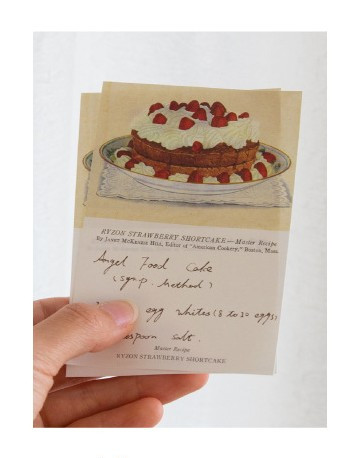 RYZON STRAWBERRY SHORTCAKE—Master Recipe
By Janet McKenzie Hill, Editor of "American Cookery," Boston, Mass.
Angel Food Cake
(syrup Method)
egg whites (8 to 10 eggs)
spoon salt.
Master Recipe
RYZON STRAWBERRY SHORTCAKE